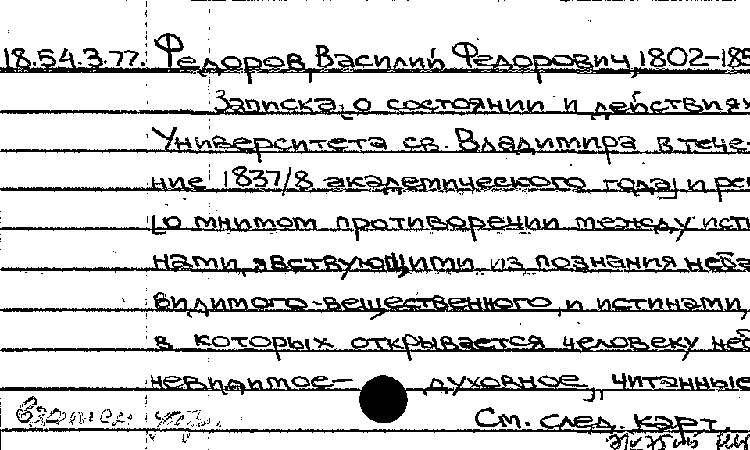 18.54.3.77. Федоров, Василий Федорович, 1802-185
Записка о состоянии и действиях
Университета св. Владимира в тече-
ние 1837/8 академического года и ре
[о мнимом противоречии между ист
нами, явствующими из познания неба
видимого-вещественного, и истинами,
в которых открывается человеку неб
невидимое- духовное, читанные
См. след. карт.